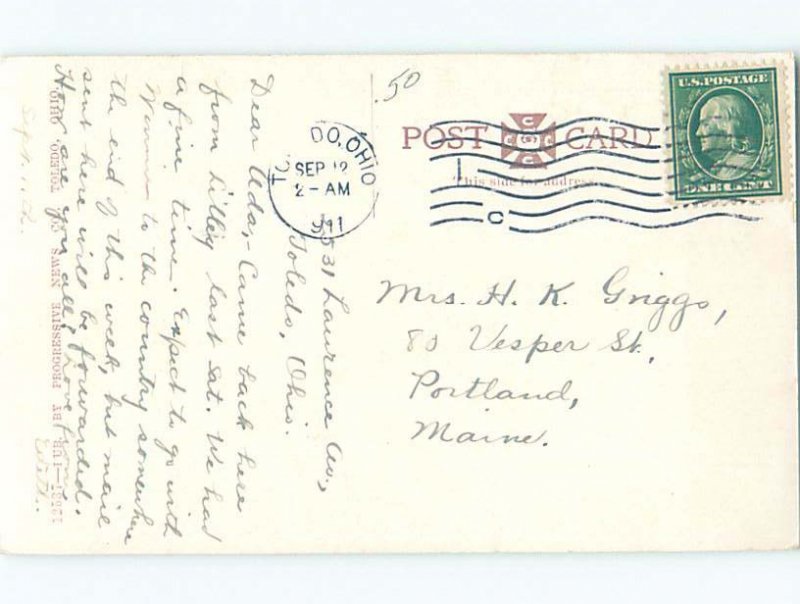 50
U.S. POSTAGE
ONE CENT
POST CARD
This side for address
DO, OHIO
SEP 12
2-AM
1911
C
Mrs. H. K. Griggs,
80 Vesper St.,
Portland,
Maine.
3531 Laurence Av.,
Toledo, Ohio.
Dear Ada,- Came back here
from Lilley last Sat. We had
a fine time. Expect to go with
to the country somewhere
the end of this week, but mail
sent here will be forwarded.
How are you all? Love from
Edith.
Sept. 11th.
PUB. BY PROGRESSIVE NEWS CO. TOLEDO, OHIO